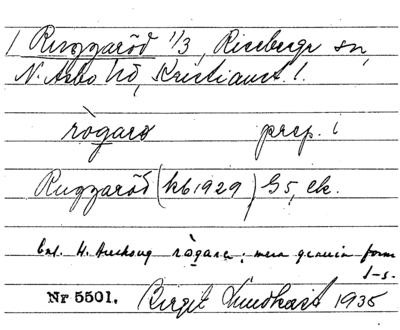 1 Ruggaröd 1/3, Riseberga sn,
N. Åsbo hd, Kristianst. l.
rògarö prep. i
Ruggaröd (kb 1929) G5, ek.
enl. rògarö: mera genuin form
Nr 5501. Birgit Lundkvist 1935